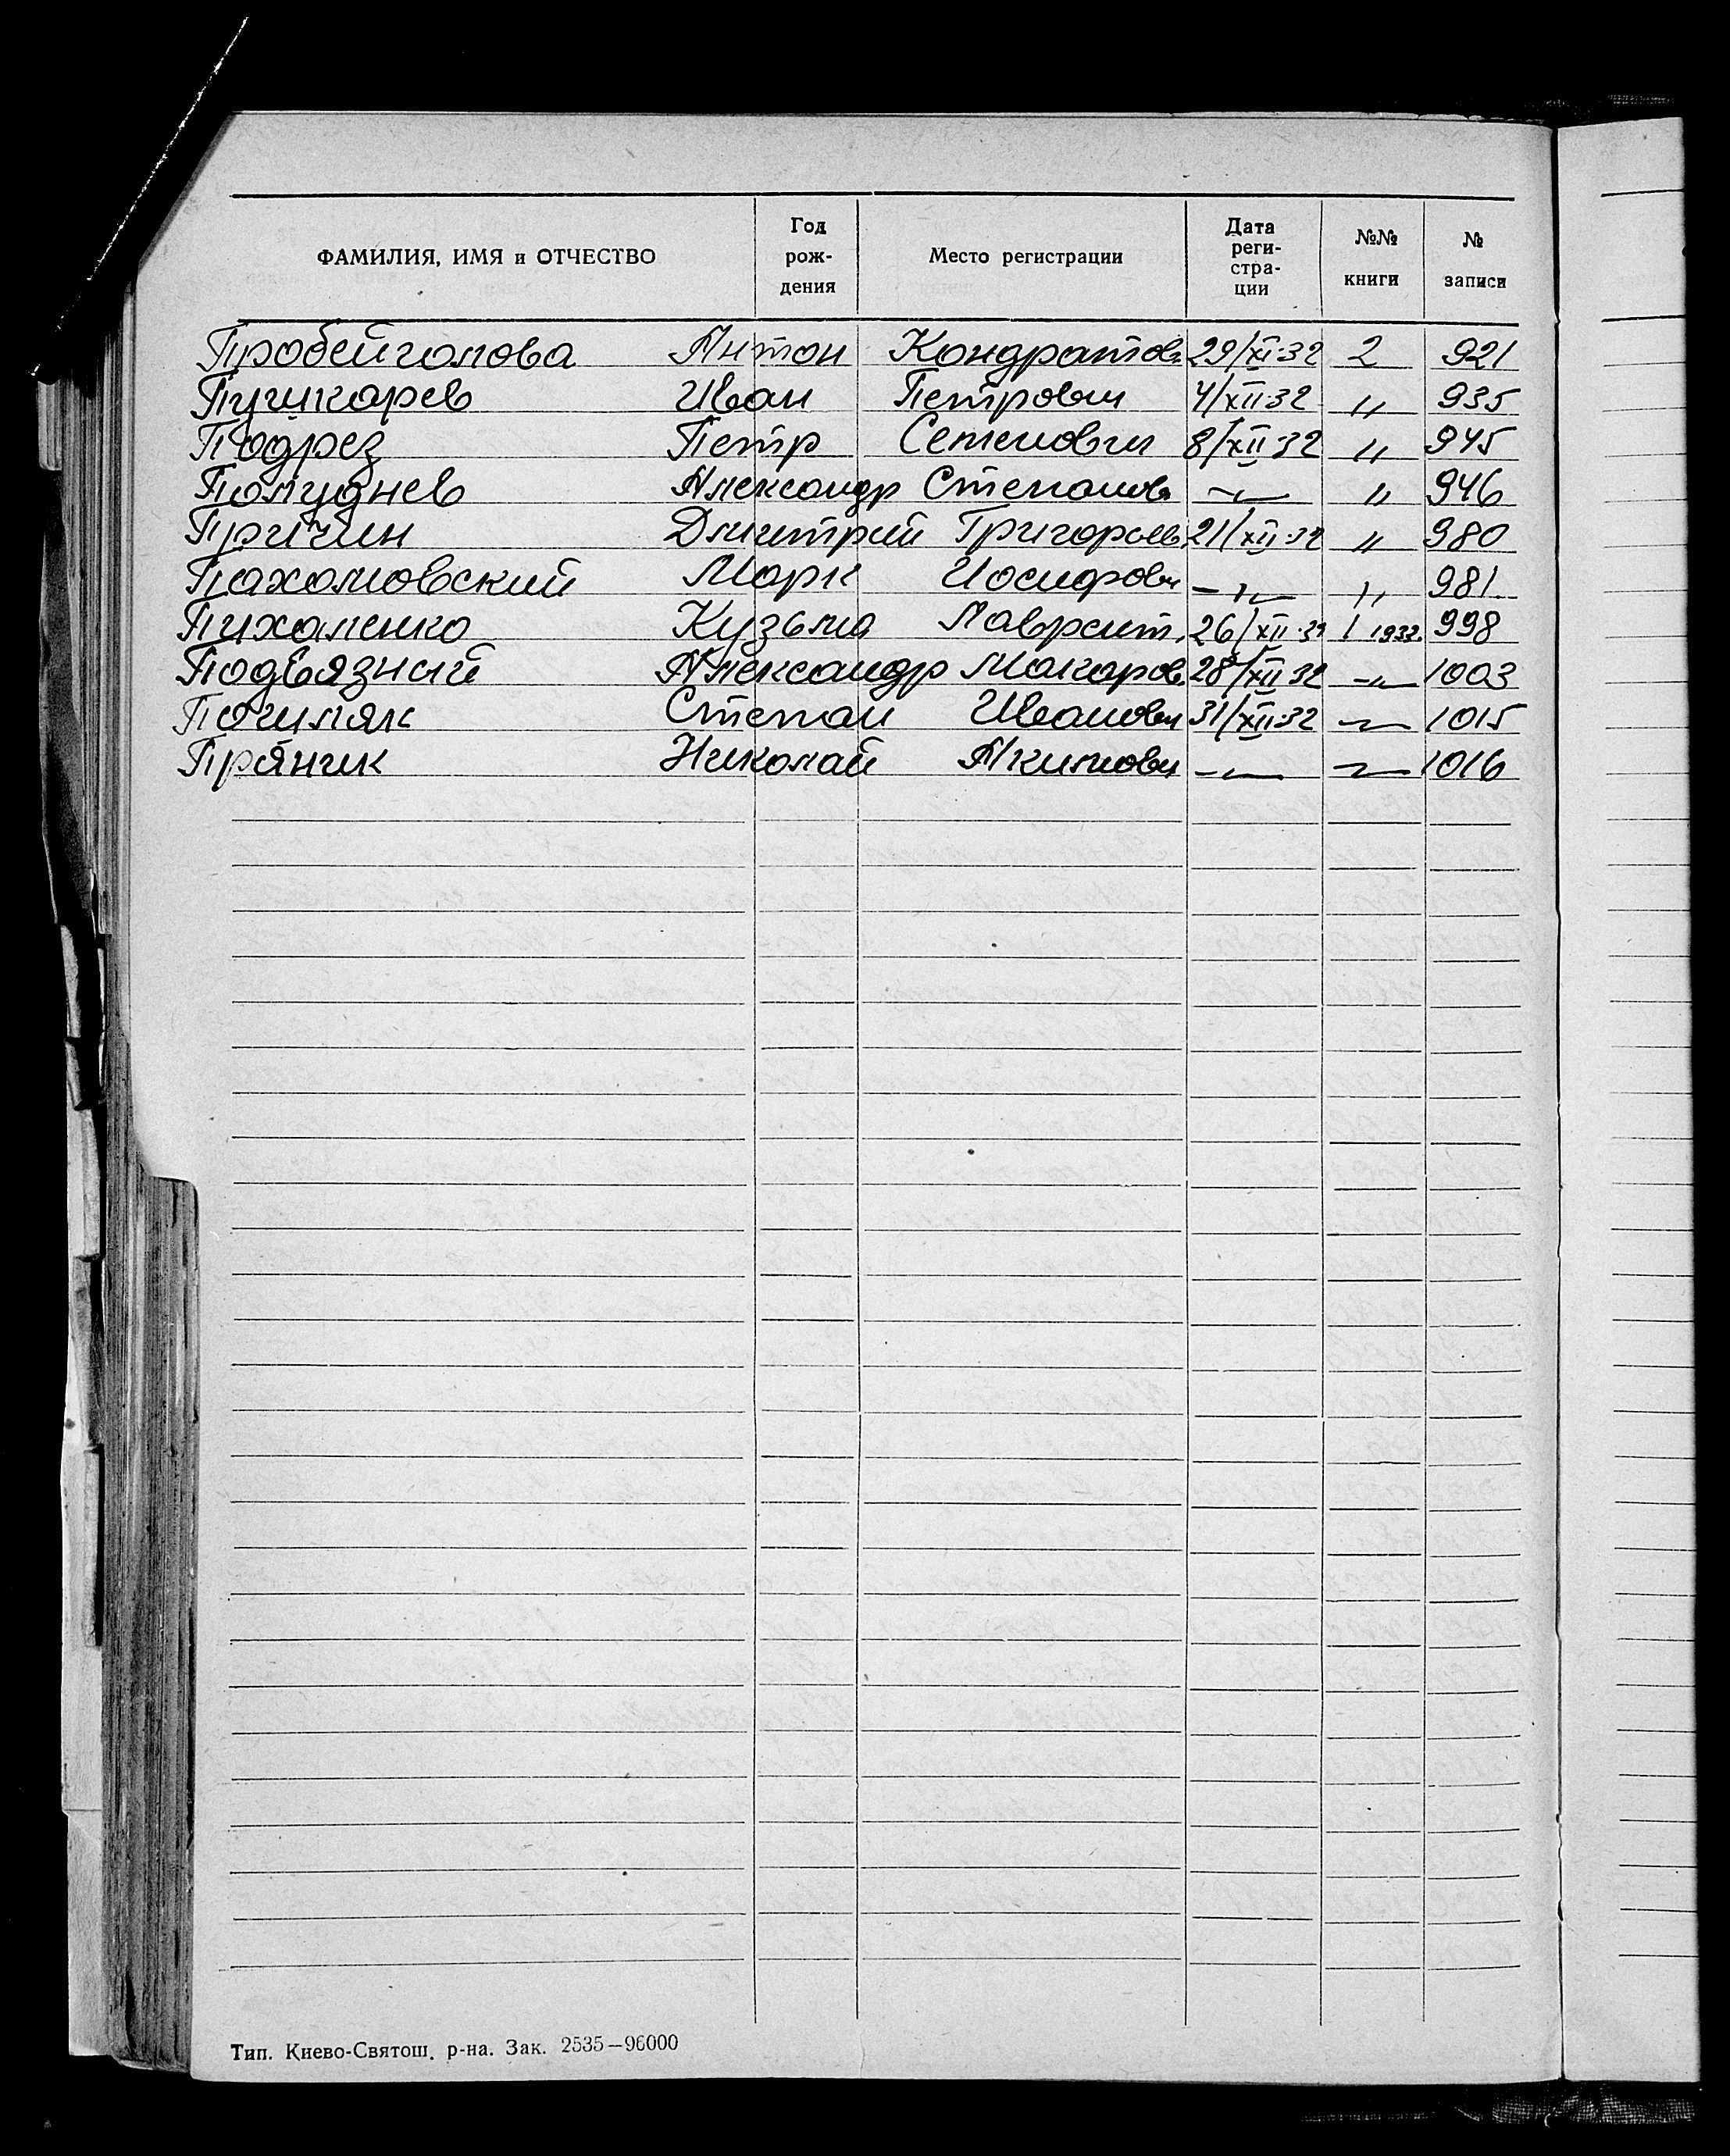 ФАМИЛИЯ, ИМЯ и ОТЧЕСТВО Год рож-дения Место регистрации Дата реги-стра-ции №№ книги № записи
Пробейголова Антон Кондратов. 29/XI-32 2 921
Пушкарев Иван Петрович 4/XII-32 〃 935
Подрез Петр Семенович 8/XII-32 〃 945
Полуднев Александр Степанов. –〃– 〃 946
Притчин Дмитрий Григорьев. 21/XII-32 〃 980
Пахомовский Марк Иосифович –〃– 〃 981
Пихаленко Кузьма Лаврент. 26/XII-32 1 1932. 998
Подвязный Александр Макаров. 28/XII-32 –〃– 1003
Почиляк Степан Иванович 31/XII-32 –〃– 1015
Пряник Николай Акимович –〃– –〃– 1016
Тип. Киево-Святош. р-на. Зак. 2535—96000